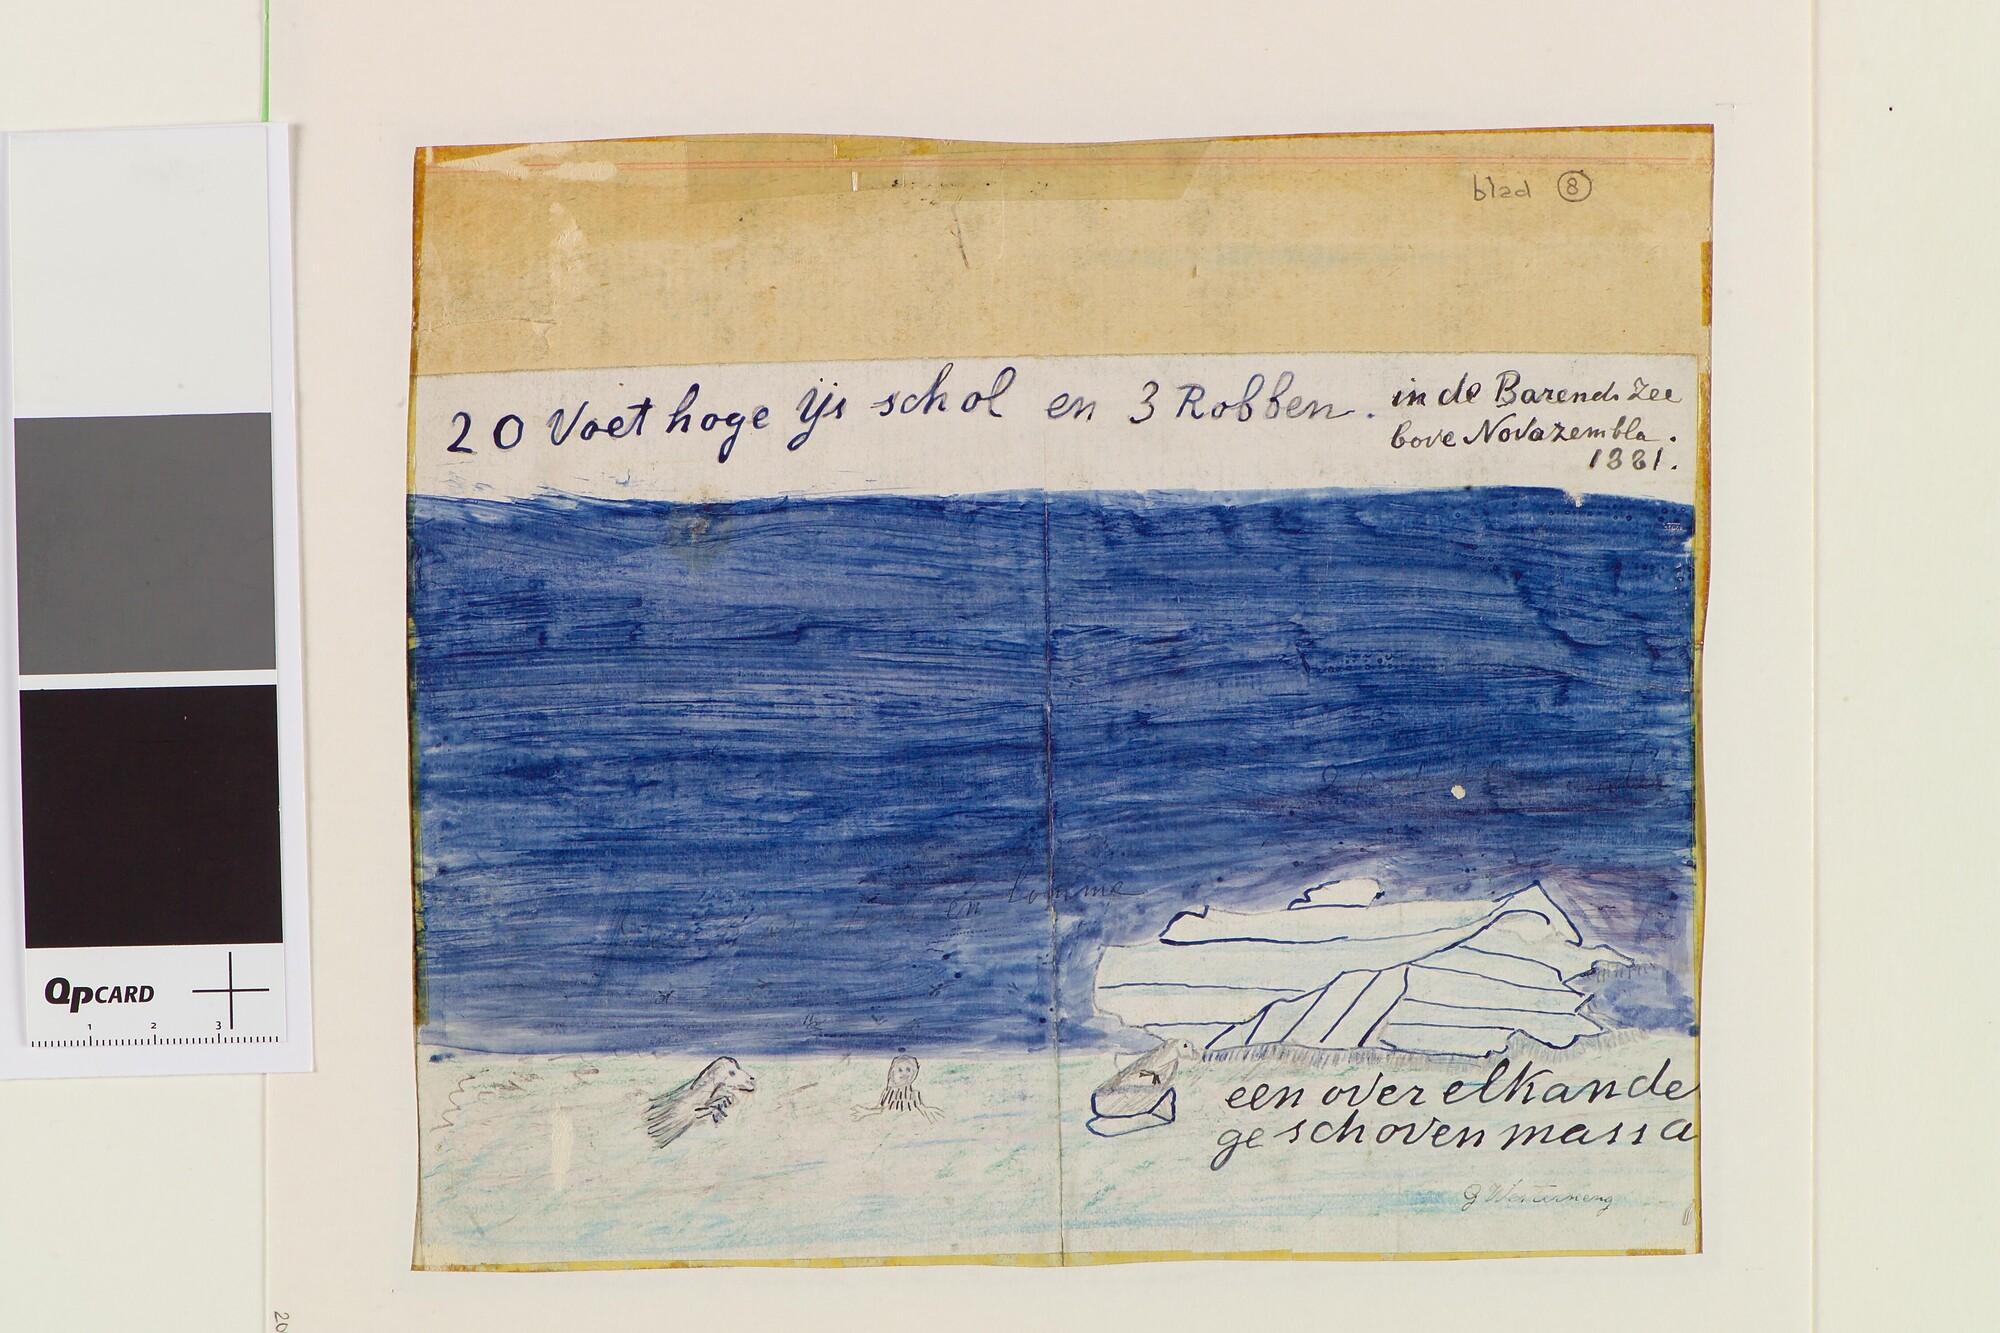 blad 8
20 Voet hoge ijs schol en 3 Robben.
in de Barends Zee
bove Novazembla.
1881.
en Lomme
een over elkande
geschoven massa
G Westerneng
QPCARD
1 2 3
20